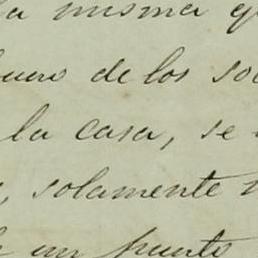 la misma q
buero de los so
la casa, se
, solamente
un punto